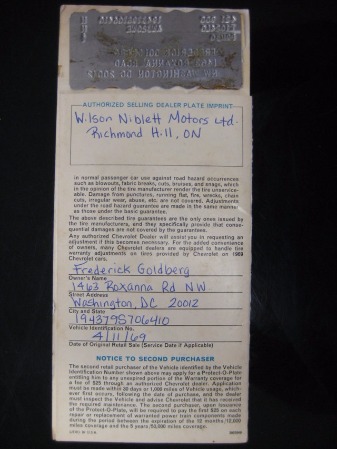 AUTHORIZED SELLING DEALER PLATE IMPRINT
Wilson Niblett Motors Ltd.
Richmond Hill, ON
in normal passenger car use against road hazard occurrences
such as blowouts, fabric breaks, cuts, bruises, and snags, which
in the opinion of the tire manufacturer render the tire unservice-
able. Damage from punctures, running flat, fire, wrecks, chain
cuts, irregular wear, abuse, etc. are not covered. Adjustments
under the road hazard guarantee are made in the same manner
as those under the basic guarantee.
The above described tire guarantees are the only ones issued by
the tire manufacturers, and they specifically provide that conse-
quential damages are not covered by the guarantee.
Any authorized Chevrolet Dealer will assist you in requesting an
adjustment if this becomes necessary. For the added convenience
of owners, many Chevrolet dealers are equipped to handle tire
warranty adjustments on tires provided by Chevrolet on 1969
Chevrolet cars.
Frederick Goldberg
Owner's Name
1463 Roxanna Rd NW
Street Address
Washington, DC 20012
City and State
194379S706410
Vehicle Identification No.
4/11/69
Date of Original Retail Sale (Service Date if Applicable)
NOTICE TO SECOND PURCHASER
The second retail purchaser of the Vehicle identified by the Vehicle
Identification Number shown above may apply for a Protect-O-Plate
entitling him to any unexpired portion of the Warranty coverage for
a fee of $25 through an authorized Chevrolet dealer. Application
must be made within 30 days or 1,000 miles of Vehicle usage, which-
ever first occurs, following the date of purchase, and the dealer
must inspect the Vehicle and advise Chevrolet that it has received
the required maintenance. The second purchaser, upon issuance
of the Protect-O-Plate, will be required to pay the first $25 on each
repair or replacement of warranted power train components made
during the period between the expiration of the 12 months/12,000
miles coverage and the 5 years/50,000 miles coverage.